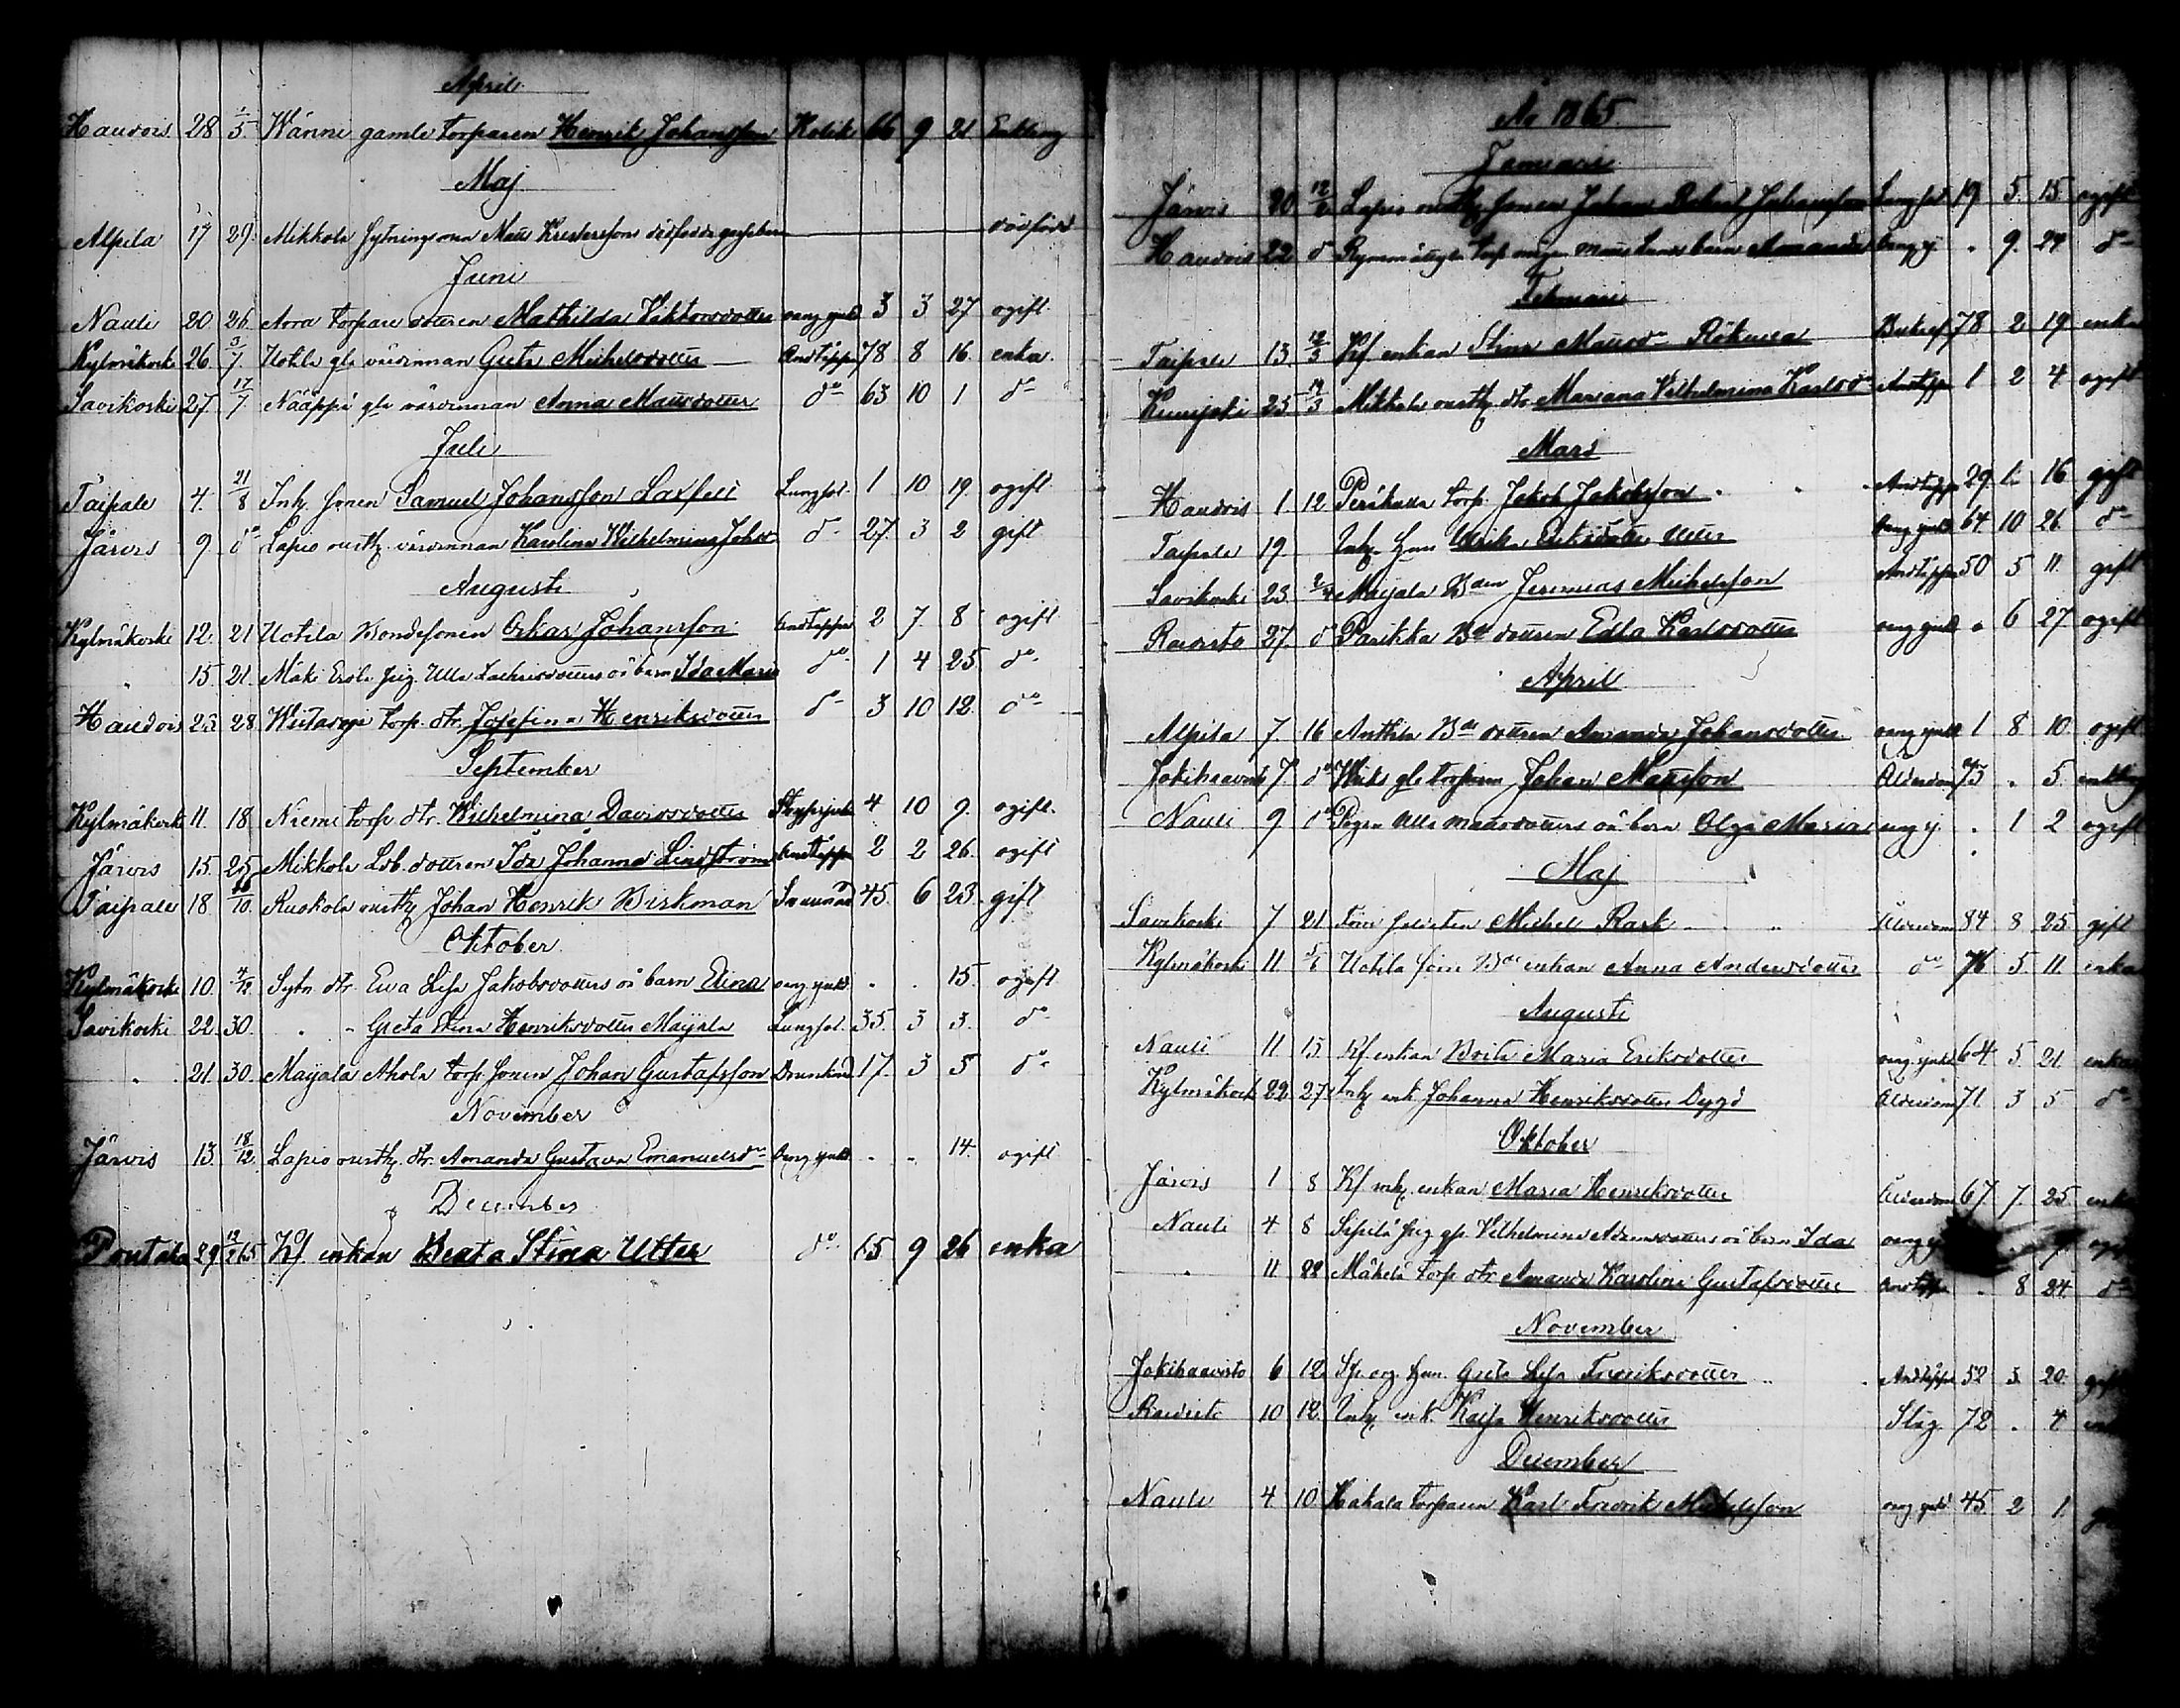 April
Haudois 28 1/5 Wänni gamle torparen Henrik Johansson Kolik 66 9 21 Enkling
Maj
Alpila 17 29 Mikkola sytningsman Matts dödfödd
Juni
Nauli 20 26 torpare dottren Mathilda Viktorsdotter okng sjukd 3 3 27 ogift
Kylmäkoski 26 3/7 Uotila gla värdinnan Greta Michelsdotter Andtäppa 78 8 16 enka
Savikoski 27 17/7 Nääppi gla värdinnan Anna Mattsdotter do 63 10 1 do
Juli
Taipale 4 21/8 Inh. sonen Samuel Johansson Laxfelt Lungsot 1 10 19 ogift
Järvis 9 do Lapio rusth. värdinnan Karolina Wilhelmina Johsd do 27 3 2 gift
Augusti
Kylmäkoski 12 21 Uotila Bondesonen Oskar Johansson Andtäppa 2 7 8 ogift
" 15 21 Mäki Ersli pig. Ulla oä barn Ida Maria do 1 4 25 do
Haudois 23 28 torp. dtr. Josefina Henriksdotter do 3 10 12 do
September
Kylmäkoski 11 18 Niemi torp. dtr. Wilhelmina Davidsdotter 4 10 9 ogift
Järvis 15 25 Mikkola dottren Ida Johanna Lindström Andtäppa 2 2 26 ogift
Taipale 18 16/10 Ruokola rusth. Johan Henrik Birkman 45 6 23 gift
Oktober
Kylmäkoski 10 4/12 Sytn. dtr. Eva Lisa Jakobsdotters oä barn Elina okng sjukd . . 15 ogift
Savikoski 22 30 " " Greta Stina Henriksdotter Maijala Lungsot 35 3 3 do
" 21 30 Maijala Ahola torp. sonen Johan Gustafsson Drunknad 17 3 5 do
November
Järvis 13 18/12 Lapio rusth. dtr. Amanda Gustava Emanuelsdr okng sjukd . . 14 ogift
December
Pontela 29 12/2 65 Kf enkan Beata Stina Utter do 65 9 26 enka
År 1865
Januari
Järvis 20 12/2 Lapio rusth. sonen Johan Johansson Lungsot 19 5 15 ogift
Haudois 22 do barn Amanda okng sj. . 9 24 do
Februari
Taipale 13 12/3 Kf enkan Stina Mattsdr 78 2 19 enka
Kurisjoki 25 19/3 Mikkola rusth. dtr. Mariana Vilhelmina Karlsdr Andtäppa 1 2 4 ogift
Mars
Haudois 1 12 Perikulla torp. Jakob Jakobsson Andtäppa 29 16 gift
Taipale 19 Inh. hun Ulrika Eriksdotter Utter okng sjukd 64 10 26 do
Savikoski 23 2/4 Maijala Bden Jeremias Michelsson Andtäppa 50 5 11 gift
Raudisto 27 do Parikka Bde dottren Edla Karlsdotter okng sjukd . 6 27 ogift
April
Alpila 7 16 Anttila Bde dottren Amanda Johansdotter okng sjukd 1 8 10 ogift
Jokihaavisto 7 do gle torparen Johan Mattsson Ålderdom 75 . 5 enkling
Nauli 9 do Pigan Ulla Mattsdotters oä barn Olga Maria okng sj. . 1 2 ogift
Maj
Savikoski 7 21 Förre soldaten Michel Rask Ålderdom 84 8 25 gift
Kylmäkoski 11 5/6 Uotila förre Bde enkan Anna Andersdotter do 76 5 11 enka
Augusti
Nauli 11 15 Kf enkan Brita Maria Eriksdotter okng sjukd 64 5 21 enka
Kylmäkoski 22 27 Inh. enk. Johanna Henriksdotter Dygd Ålderdom 71 3 5 do
Oktober
Järvis 1 8 Kf inh. enkan Maria Henriksdotter Ålderdom 67 7 25 enka
Nauli 4 8 Sipilä pig. Vilhelmina Adamsdotters oä barn Ida okng
" 11 22 Mäkelä torp. dtr. Amanda Karolina Gustafsdotter Andtäppa . 8 24 do
November
Jokihaavisto 6 12 hun. Greta Lisa Fredriksdotter Andtäppa 52 3 20 gift
Raudisto 10 12 Inh. enk. Kajsa Henriksdotter Slag 72 . 4 enka
December
Nauli 4 10 Hakala torparen Karl Fredrik Michelsson okng sjukd 45 2 1